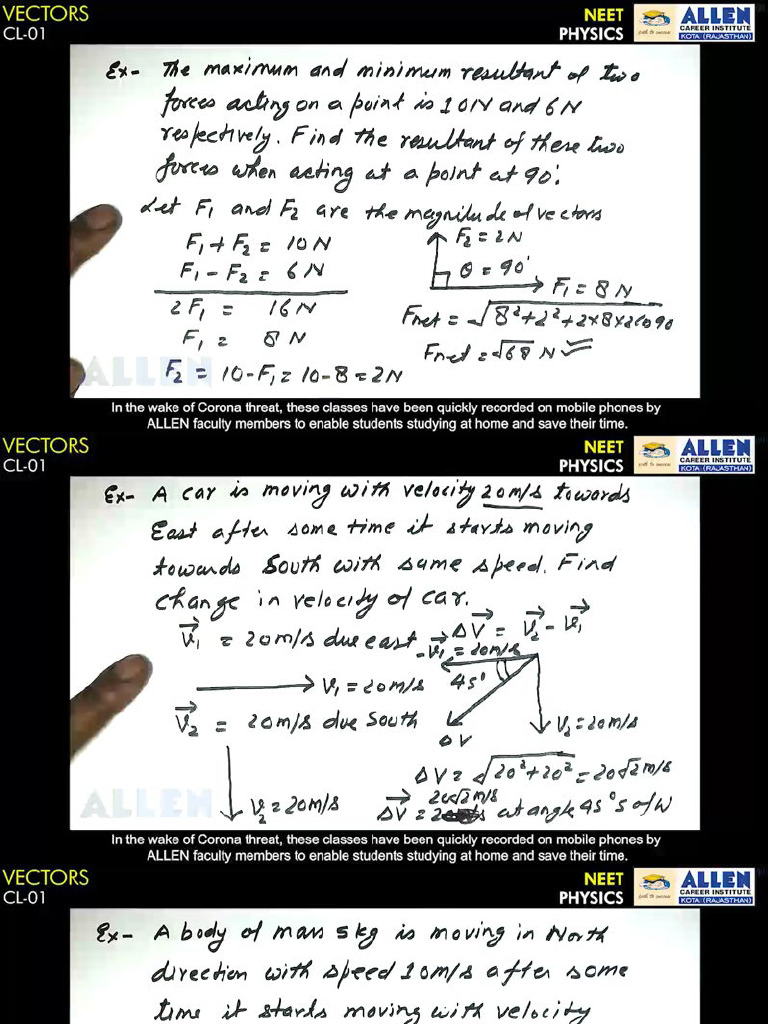 VECTORS
CL-01
NEET
PHYSICS
ALLEN
CAREER INSTITUTE
KOTA (RAJASTHAN)
Ex- The maximum and minimum resultant of two
forces acting on a point is 10N and 6N
respectively. Find the resultant of these two
forces when acting at a point at 90°.
Let F₁ and F₂ are the magnitude of vectors
F₁ + F₂ = 10 N
F₁ - F₂ = 6 N
2F₁ = 16 N
F₁ = 8 N
F₂ = 10-F₁ = 10-8 = 2N
F₂ = 2N
θ = 90°
F₁ = 8 N
Fnet = √8²+2²+2×8×2cos90
Fnet = √68 N
ALLEN
In the wake of Corona threat, these classes have been quickly recorded on mobile phones by
ALLEN faculty members to enable students studying at home and save their time.
VECTORS
CL-01
NEET
PHYSICS
ALLEN
CAREER INSTITUTE
KOTA (RAJASTHAN)
Ex- A car is moving with velocity 20m/s towards
East after some time it starts moving
towards South with same speed. Find
change in velocity of car.
V₁ = 20m/s due east
ΔV = V₂ - V₁
-V₁ = 20m/s
V₁ = 20m/s
45°
V₂ = 20m/s due South
ΔV
V₂ = 20m/s
ΔV = √20²+20² = 20√2 m/s
V₂ = 20m/s
20√2 m/s
ΔV = at angle 45° S of W
ALLEN
In the wake of Corona threat, these classes have been quickly recorded on mobile phones by
ALLEN faculty members to enable students studying at home and save their time.
VECTORS
CL-01
NEET
PHYSICS
ALLEN
CAREER INSTITUTE
KOTA (RAJASTHAN)
Ex- A body of mass 5 kg is moving in North
direction with speed 10m/s after some
time it starts moving with velocity